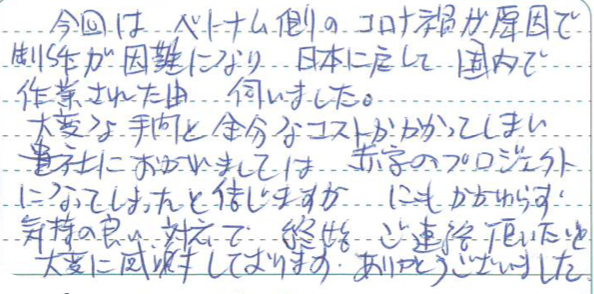 今回は ベトナム側の コロナ禍が原因で
制作が困難になり 日本に戻して 国内で
作業された由 伺いました。
大変な手間と余分なコストがかかってしまい
貴社におかれましては 赤字のプロジェクト
になってしまったと信じますが にもかかわらず
気持の良い 対応で 終始 ご連絡 頂いた
大変に感謝しております。ありがとうございました。